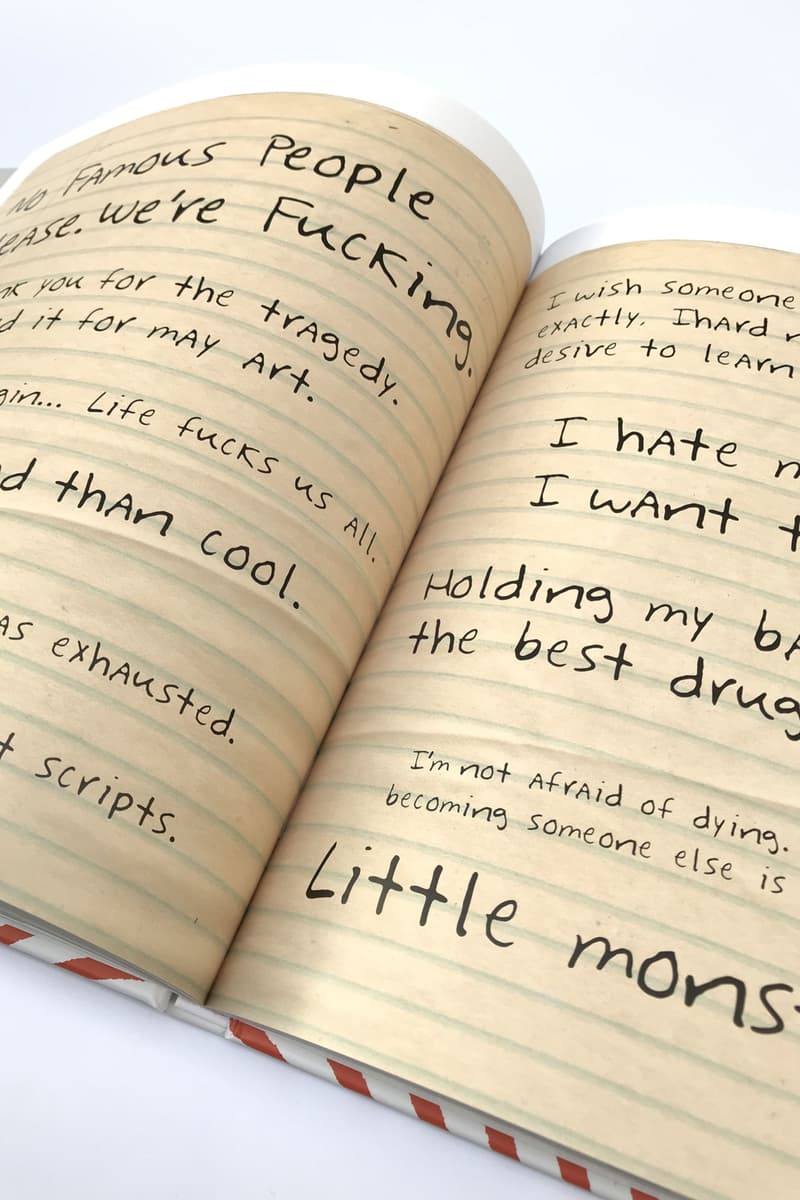 NO FAMOUS PEOPLE
EASE. We're Fucking.
nk you for the tragedy.
d it for may art.
gin... Life fucks us all.
d than cool.
as exhausted.
t scripts.
I wish someone
exactly. Ihard
desive to learn
I hate
I want t
Holding my ba
the best drug
I'm not afraid of dying.
becoming someone else is
Little mons